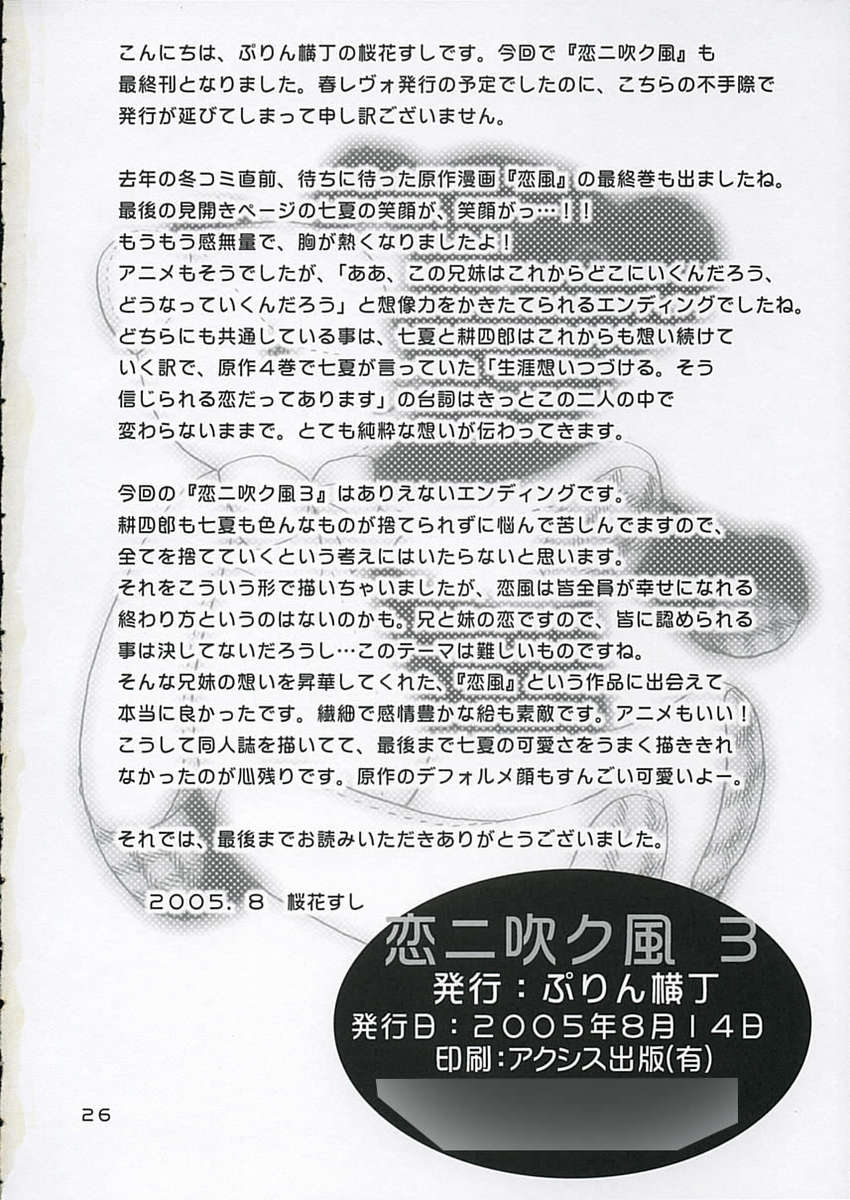 こんにちは、ぷりん横丁の桜花すしです。今回で『恋ニ吹ク風』も
最終刊となりました。春レヴォ発行の予定でしたのに、こちらの不手際で
発行が延びてしまって申し訳ございません。
去年の冬コミ直前、待ちに待った原作漫画『恋風』の最終巻も出ましたね。
最後の見開きページの七夏の笑顔が、笑顔がっ…！！
もうもう感無量で、胸が熱くなりましたよ！
アニメもそうでしたが、「ああ、この兄妹はこれからどこにいくんだろう、
どうなっていくんだろう」と想像力をかきたてられるエンディングでしたね。
どちらにも共通している事は、七夏と耕四郎はこれからも想い続けて
いく訳で、原作４巻で七夏が言っていた「生涯想いつづける。そう
信じられる恋だってあります」の台詞はきっとこの二人の中で
変わらないままで。とても純粋な想いが伝わってきます。
今回の『恋ニ吹ク風３』はありえないエンディングです。
耕四郎も七夏も色んなものが捨てられずに悩んで苦しんでますので、
全てを捨てていくという考えにはいたらないと思います。
それをこういう形で描いちゃいましたが、恋風は皆全員が幸せになれる
終わり方というのはないのかも。兄と妹の恋ですので、皆に認められる
事は決してないだろうし…このテーマは難しいものですね。
そんな兄妹の想いを昇華してくれた、『恋風』という作品に出会えて
本当に良かったです。繊細で感情豊かな絵も素敵です。アニメもいい！
こうして同人誌を描いてて、最後まで七夏の可愛さをうまく描ききれ
なかったのが心残りです。原作のデフォルメ顔もすんごい可愛いよー。
それでは、最後までお読みいただきありがとうございました。
２００５．８　桜花すし
恋ニ吹ク風 ３
発行：ぷりん横丁
発行日：２００５年８月１４日
印刷：アクシス出版(有)
26